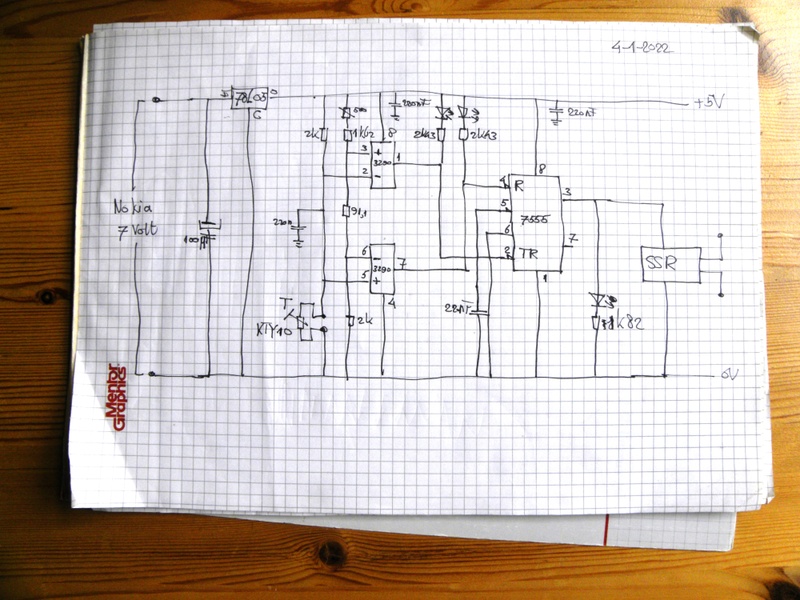 4-1-2022
78L05
O
C
+5V
220nF
220nF
500
2k
1k62
8
3
+
3290
1
2
-
2k43
2k43
8
4
R
3
5
7555
6
7
2
TR
1
Nokia
7 Volt
100µF
220n
91,1
6
-
3290
7
5
+
4
22nF
SSR
T
KTY10
2k
1k82
0V
Mentor
Graphics